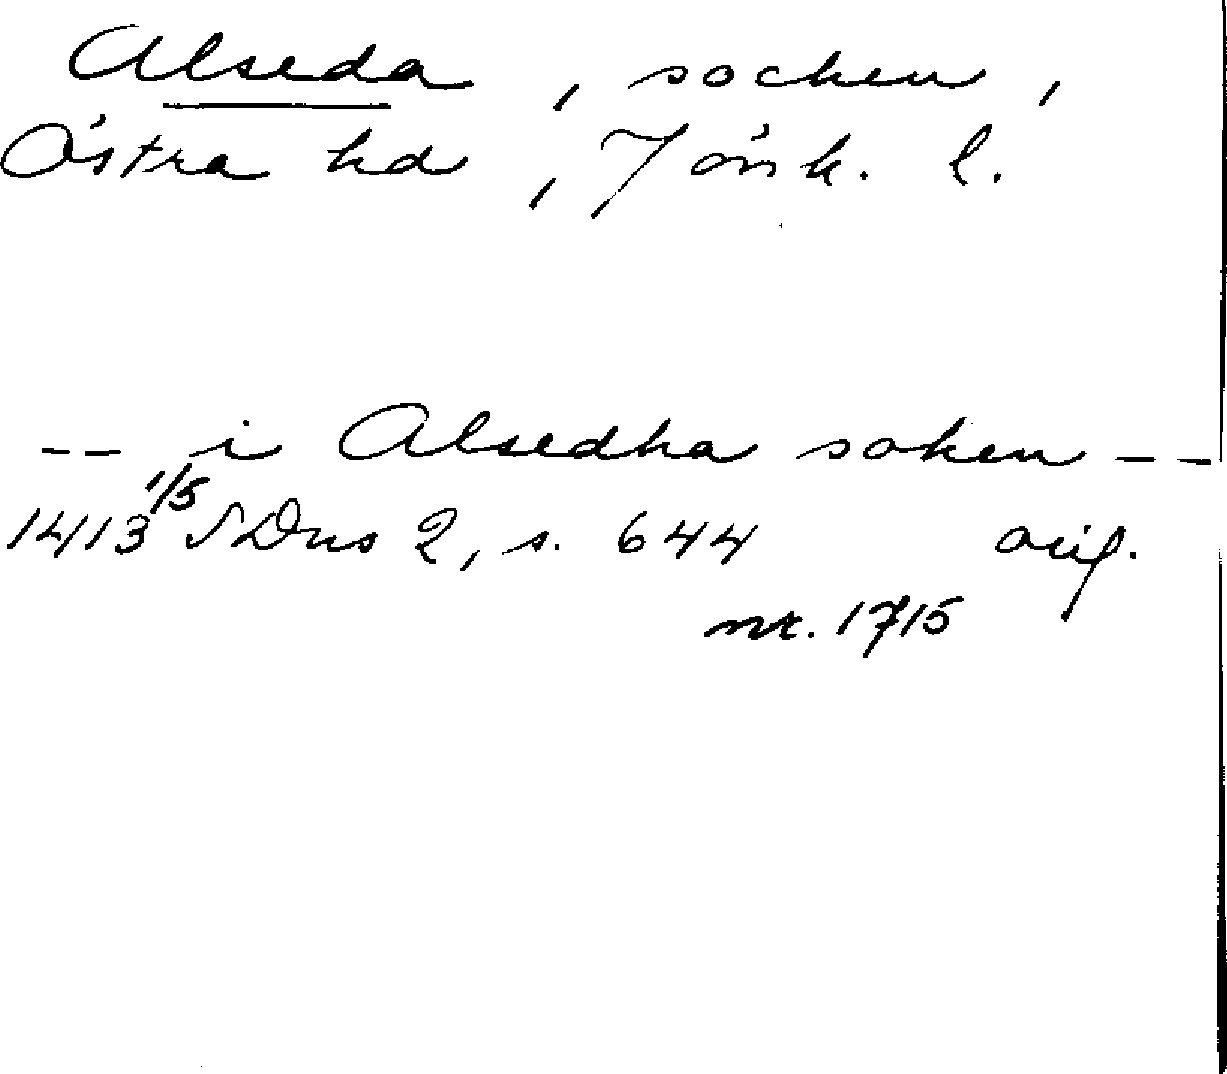 Alseda, socken,
Östra hd, Jönk. l.
-- i Alsedha soken --
1413 1/5 SDns 2, s. 644 orig.
nr. 1715